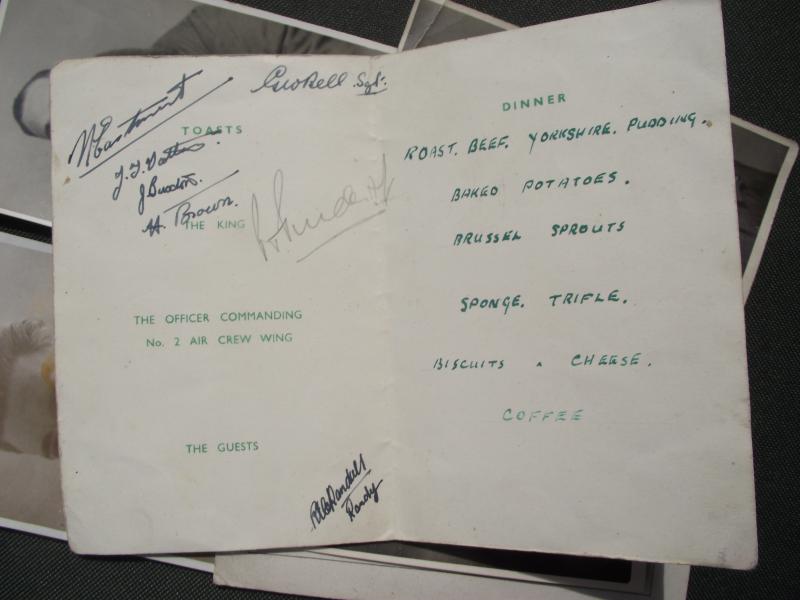 Sgt.
TOASTS
H. Brown.
THE KING
THE OFFICER COMMANDING
No. 2 AIR CREW WING
THE GUESTS
Randy
DINNER
ROAST. BEEF. YORKSHIRE. PUDDING.
BAKED POTATOES.
BRUSSEL SPROUTS
SPONGE. TRIFLE.
BISCUITS & CHEESE.
COFFEE